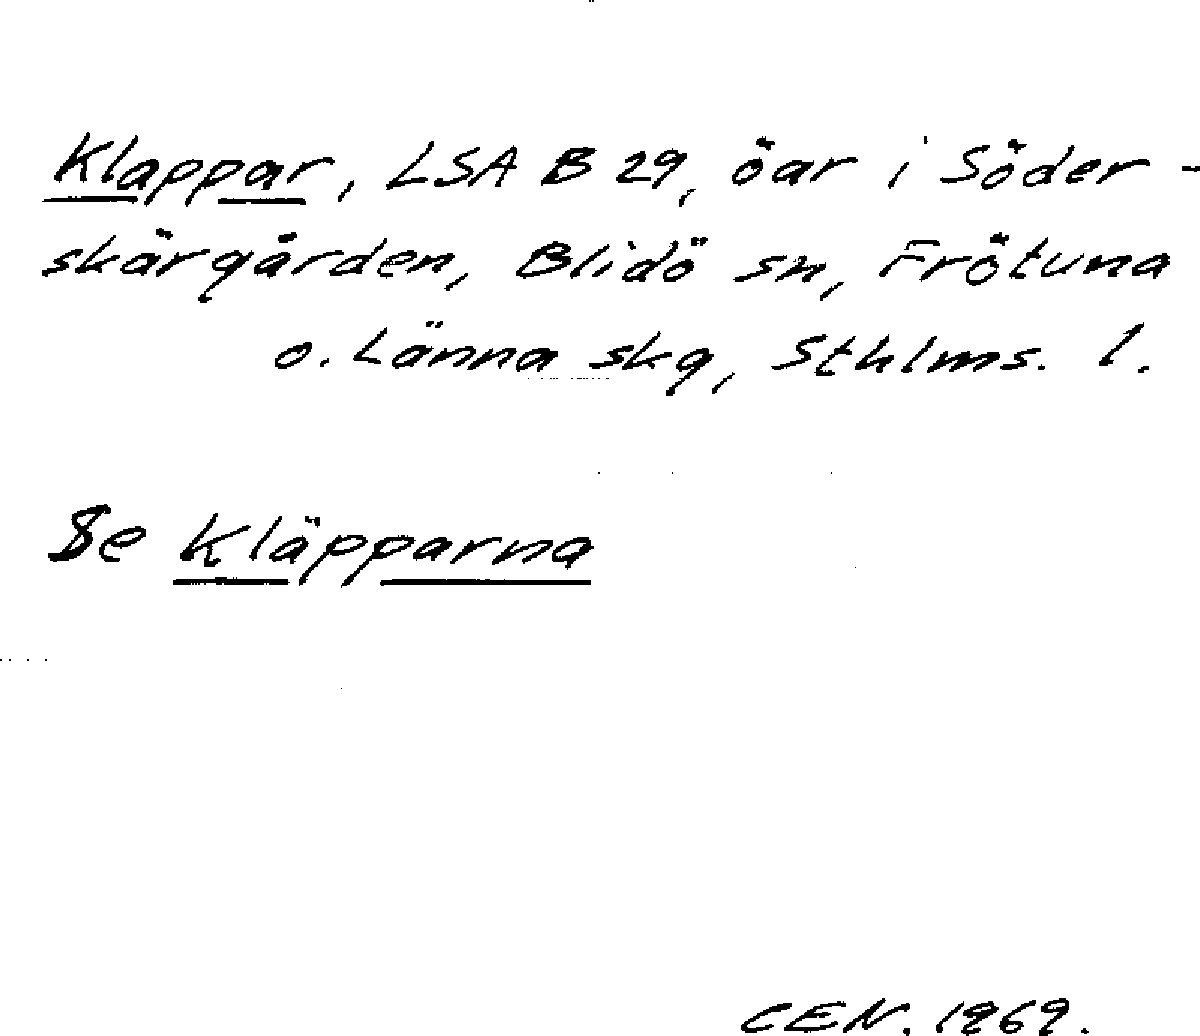 Klappar, LSA B 29, öar i Söder-
skärgården, Blidö sn, Frötuna
o. Länna skg, Sthlms. l.
Se Kläpparna
CEN. 1969.